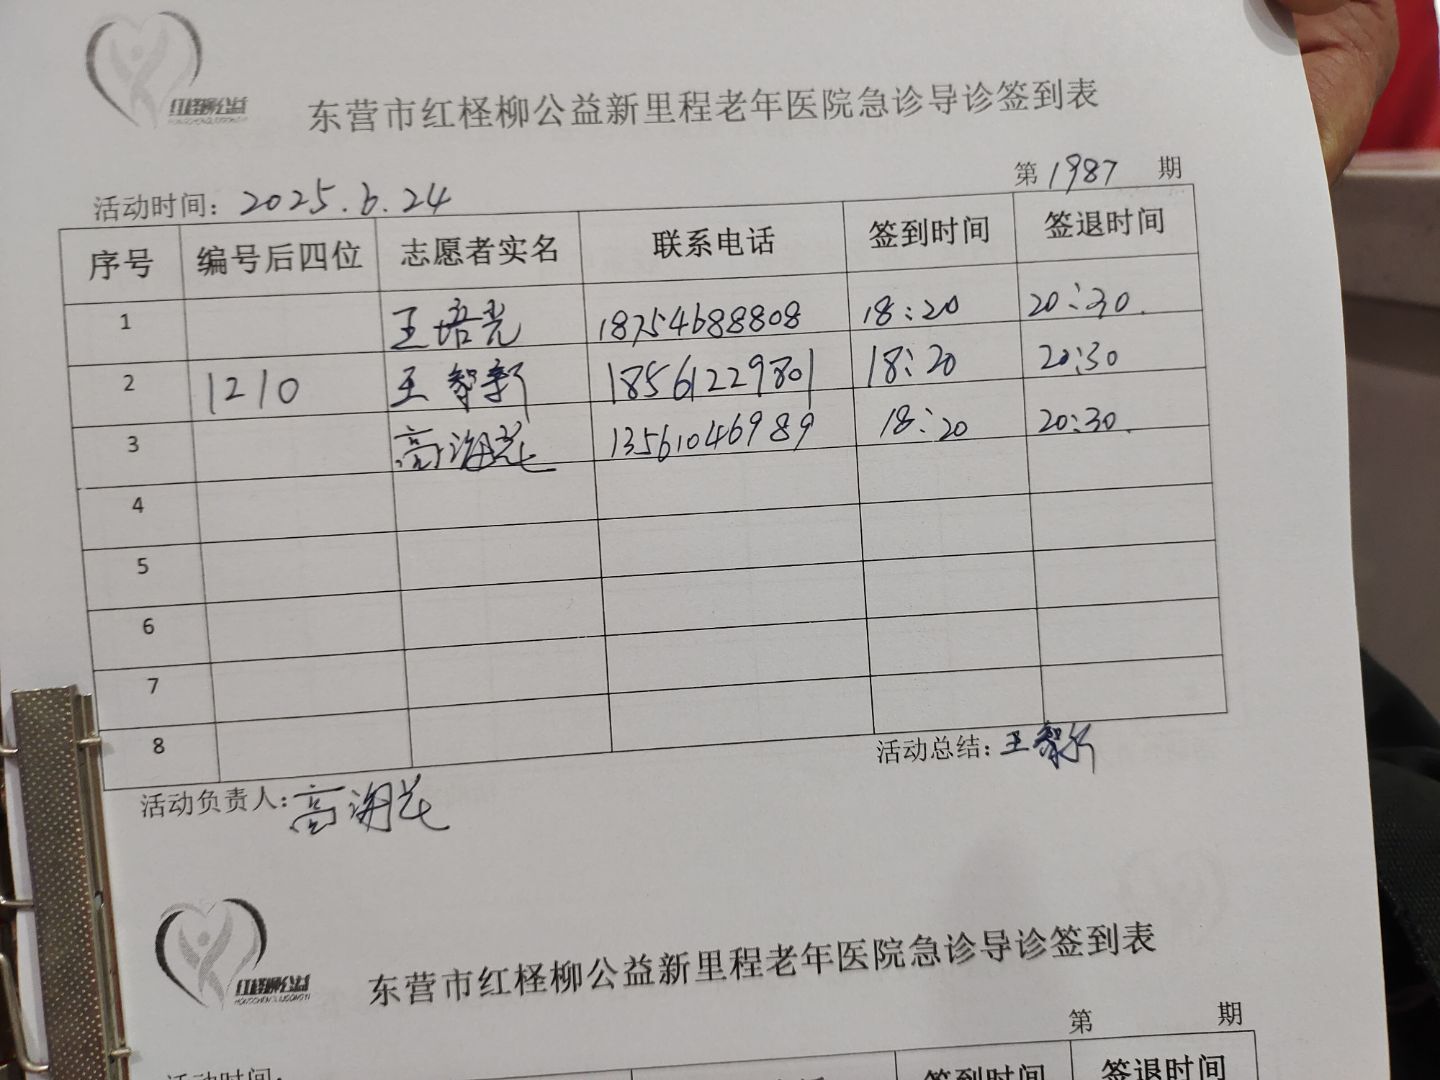 红柽柳公益
东营市红柽柳公益新里程老年医院急诊导诊签到表
第1987期
活动时间：2025.6.24
序号 编号后四位 志愿者实名 联系电话 签到时间 签退时间
1 王培光 18754688808 18:20 20:30.
2 1210 王智新 18561229801 18:20 20:30
3 高海花 13561046989 18:20 20:30.
4
5
6
7
8
活动总结：王智新
活动负责人：高海花
红柽柳公益
HONGCHENGLIUGONGYI
东营市红柽柳公益新里程老年医院急诊导诊签到表
第 期
活动时间：
签到时间 签退时间